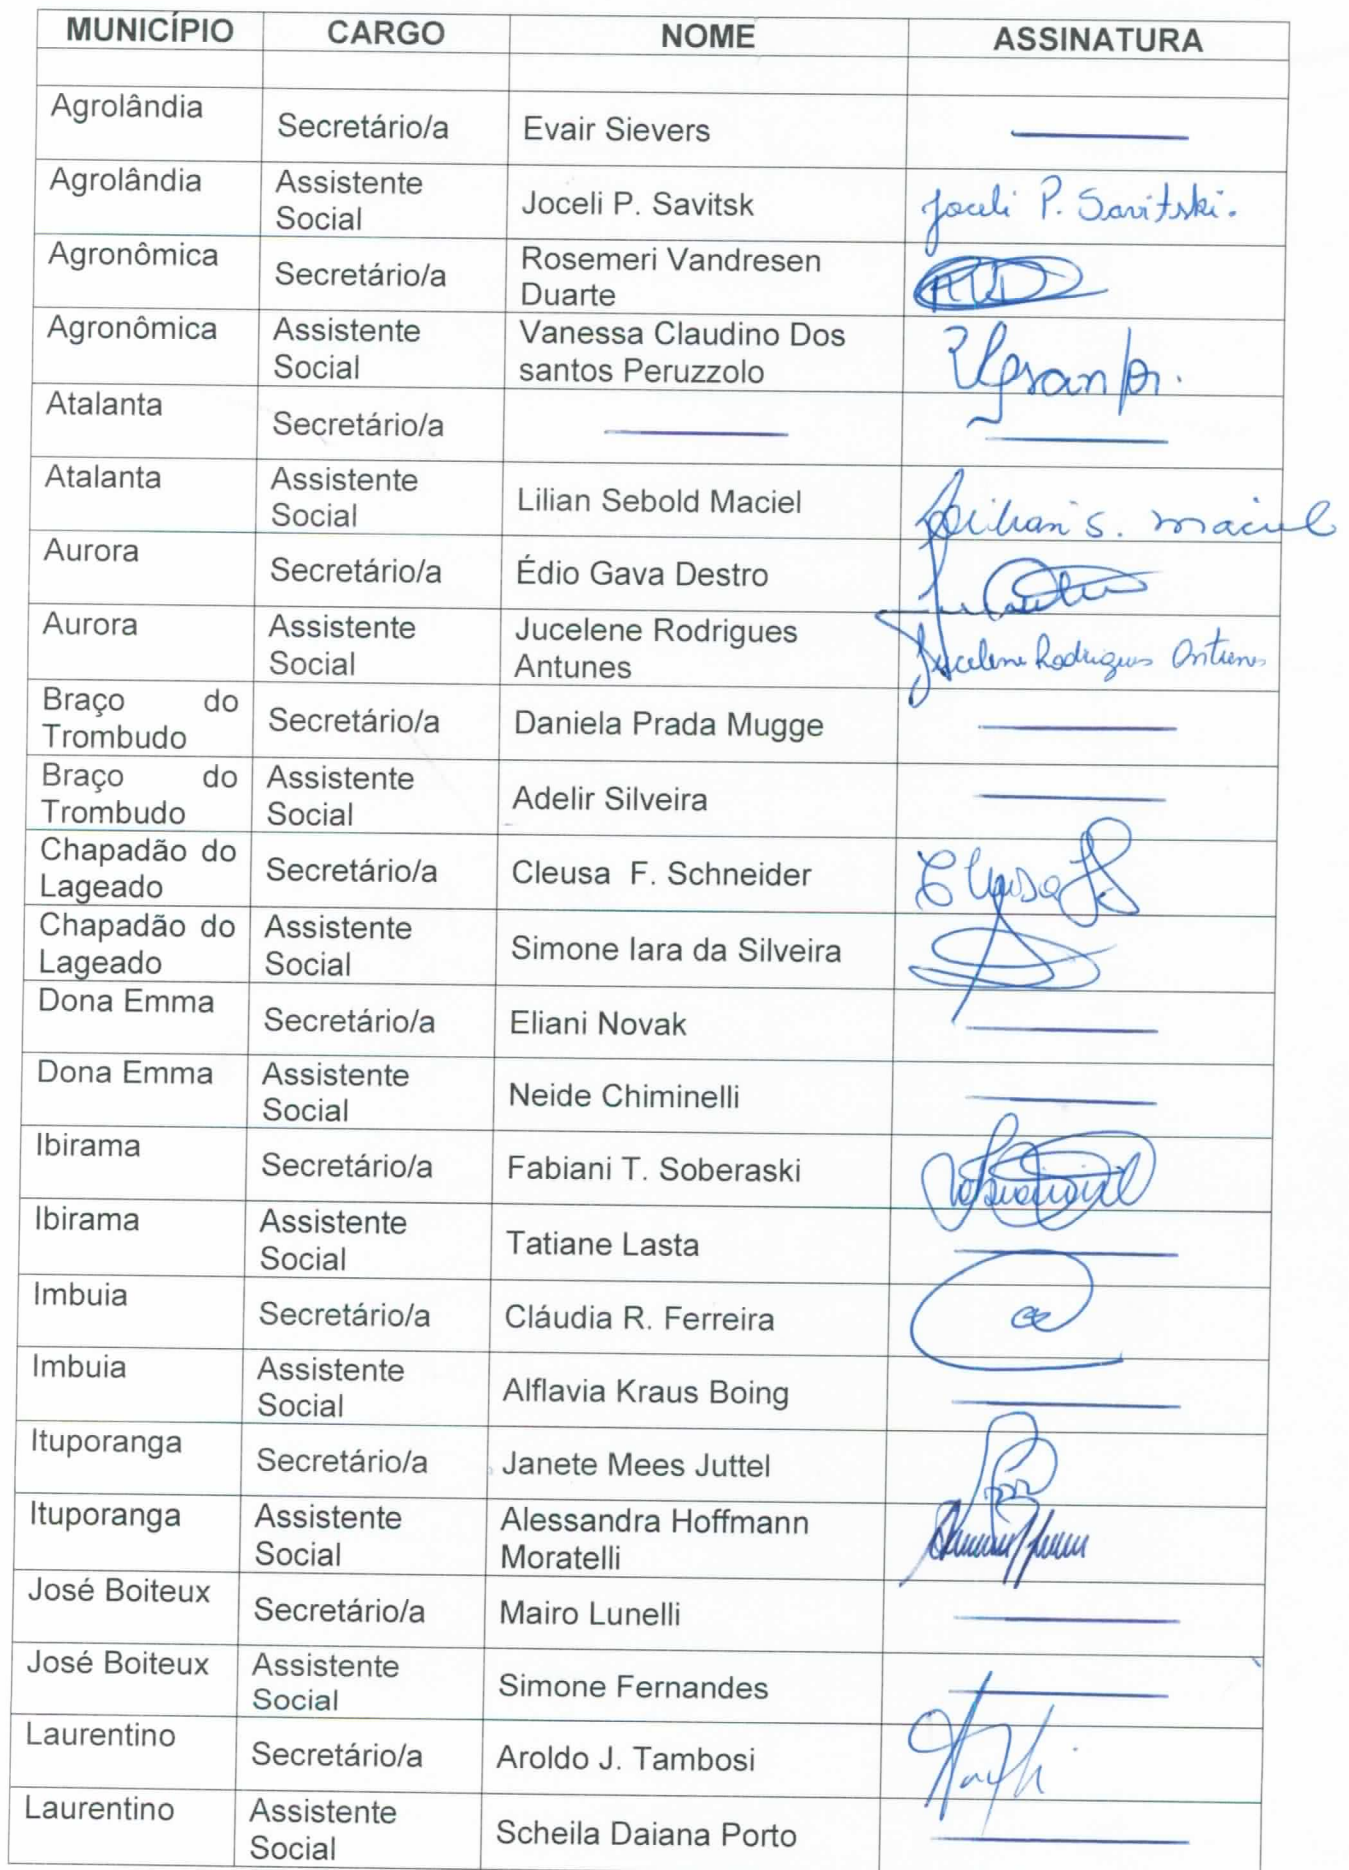 MUNICÍPIO CARGO NOME ASSINATURA
Agrolândia Secretário/a Evair Sievers
Agrolândia Assistente Social Joceli P. Savitsk Joceli P. Savitski.
Agronômica Secretário/a Rosemeri Vandresen Duarte
Agronômica Assistente Social Vanessa Claudino Dos santos Peruzzolo
Atalanta Secretário/a
Atalanta Assistente Social Lilian Sebold Maciel Lilian S. Maciel
Aurora Secretário/a Édio Gava Destro
Aurora Assistente Social Jucelene Rodrigues Antunes Jucelene Rodrigues Antunes
Braço do Trombudo Secretário/a Daniela Prada Mugge
Braço do Trombudo Assistente Social Adelir Silveira
Chapadão do Lageado Secretário/a Cleusa F. Schneider Cleusa
Chapadão do Lageado Assistente Social Simone Iara da Silveira
Dona Emma Secretário/a Eliani Novak
Dona Emma Assistente Social Neide Chiminelli
Ibirama Secretário/a Fabiani T. Soberaski
Ibirama Assistente Social Tatiane Lasta
Imbuia Secretário/a Cláudia R. Ferreira
Imbuia Assistente Social Alflavia Kraus Boing
Ituporanga Secretário/a Janete Mees Juttel
Ituporanga Assistente Social Alessandra Hoffmann Moratelli
José Boiteux Secretário/a Mairo Lunelli
José Boiteux Assistente Social Simone Fernandes
Laurentino Secretário/a Aroldo J. Tambosi
Laurentino Assistente Social Scheila Daiana Porto